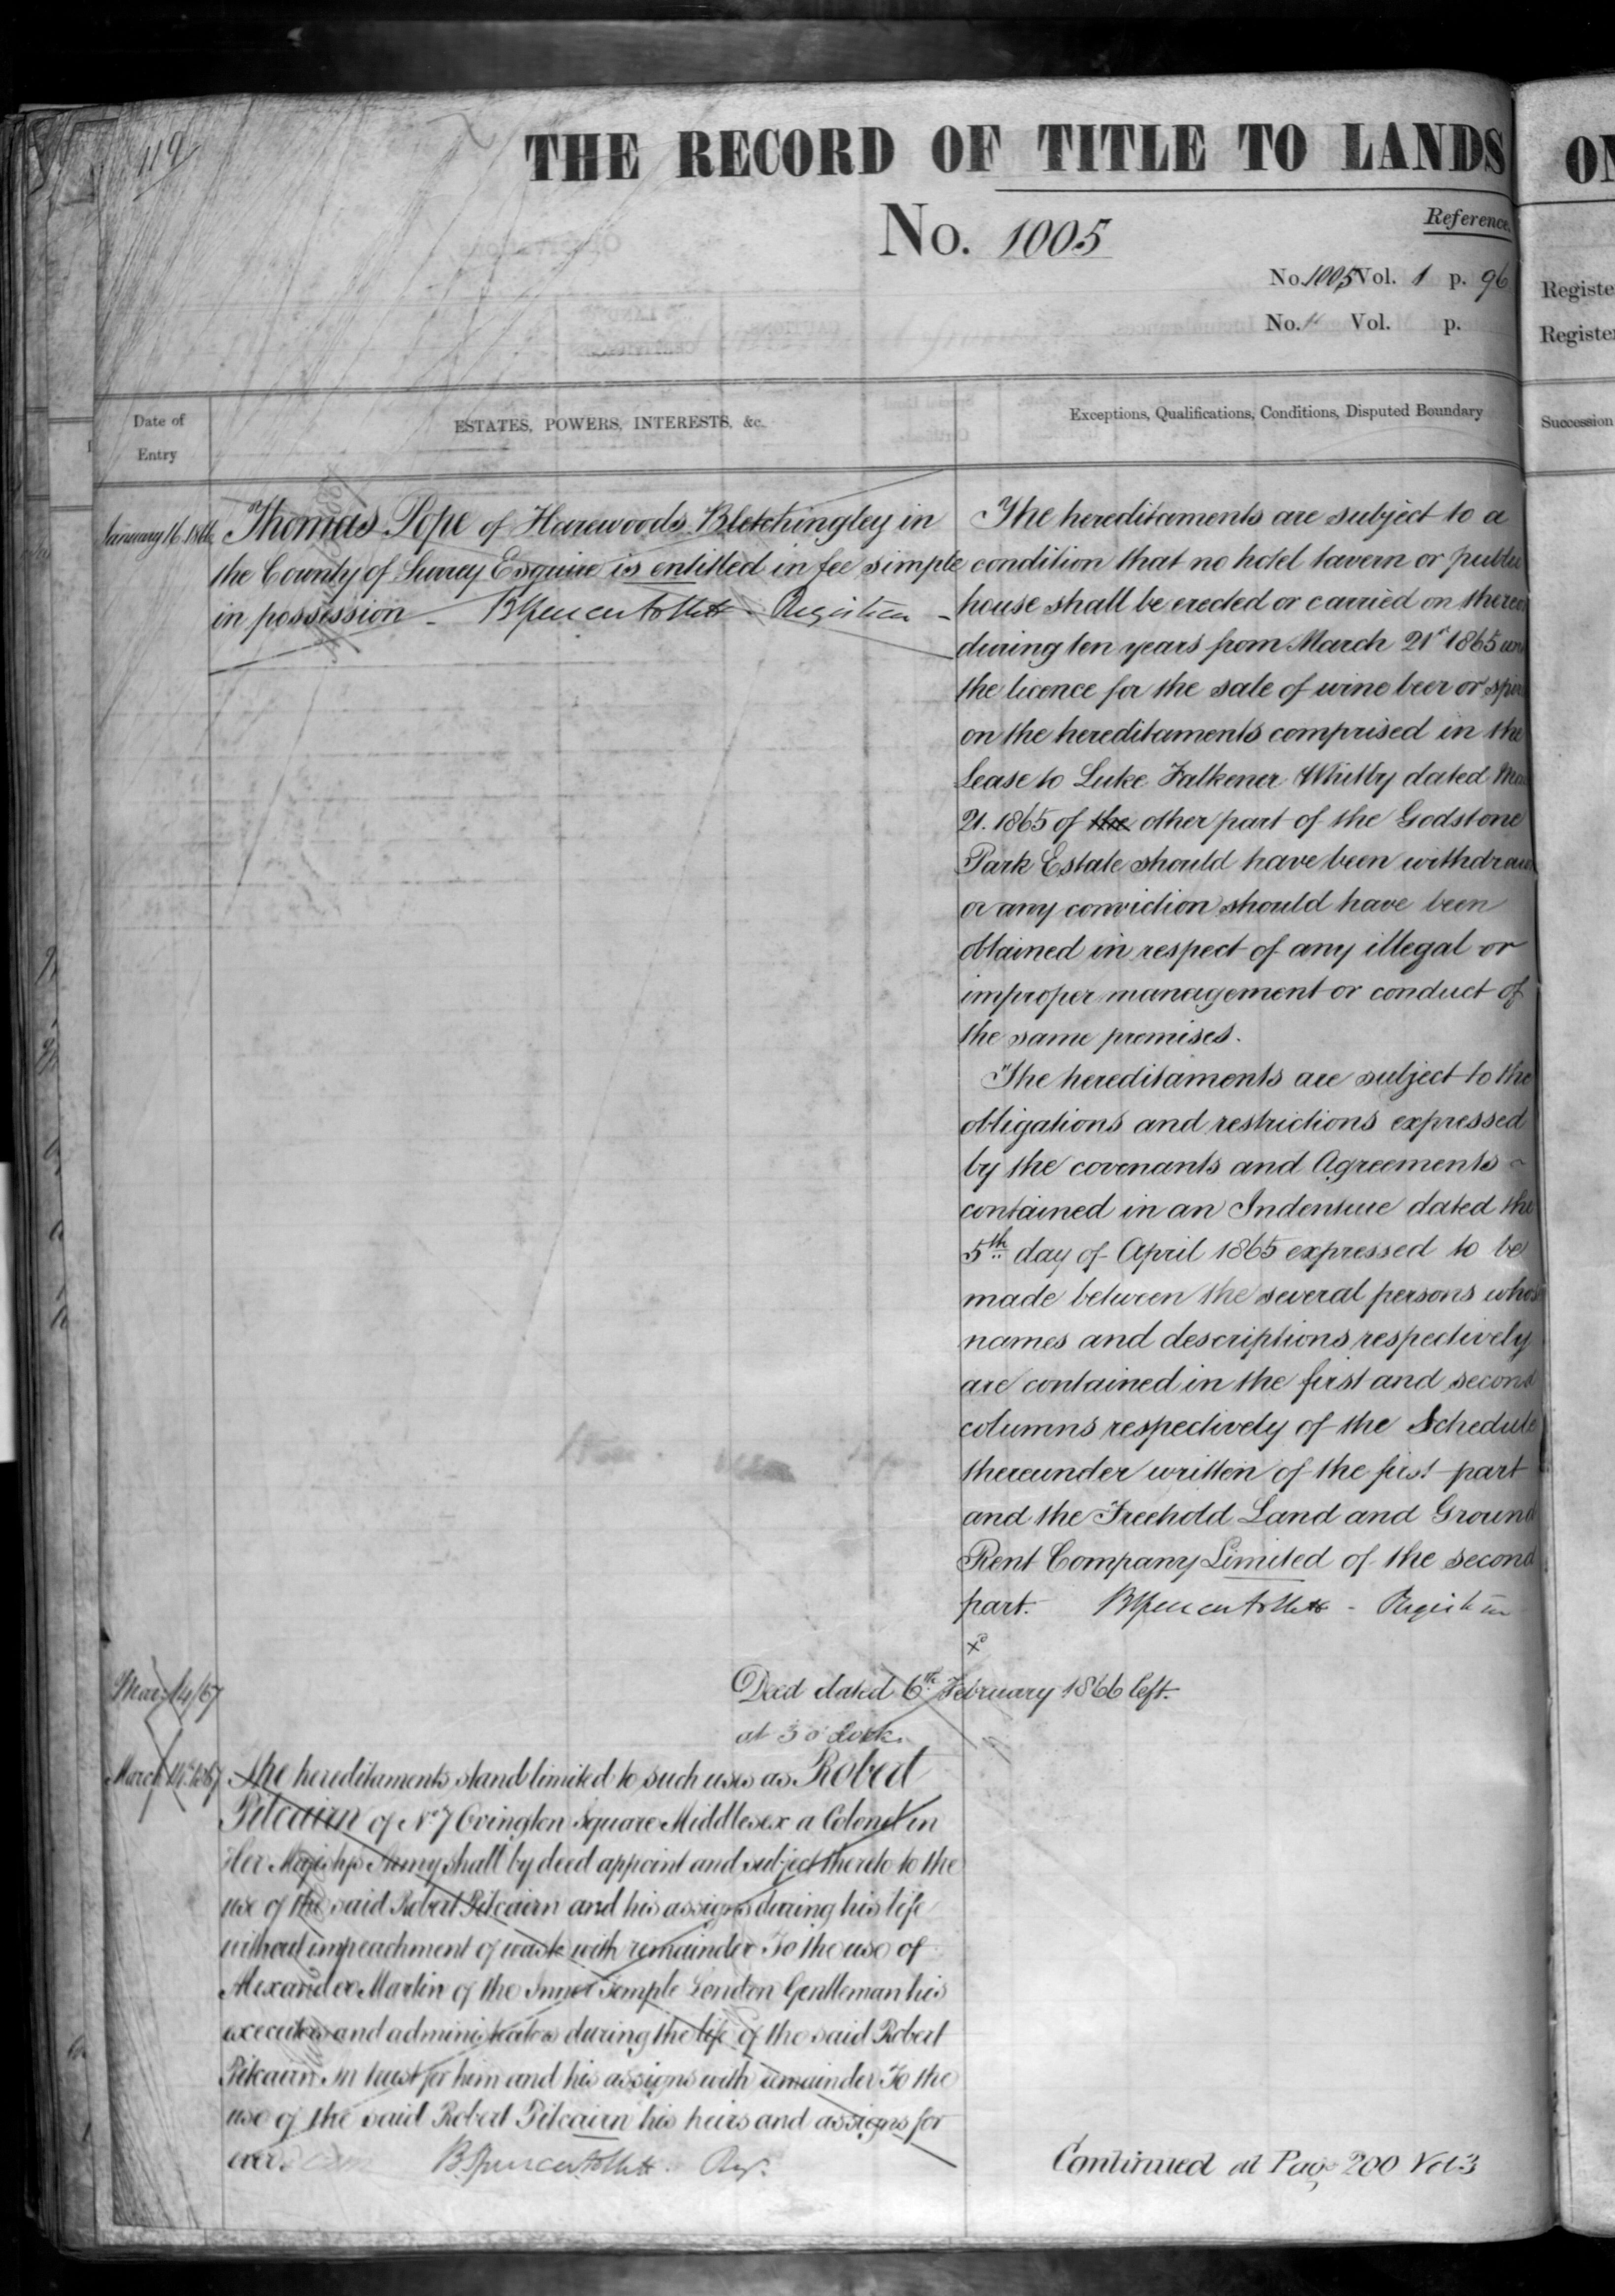 119
THE RECORD OF TITLE TO LANDS
No. 1005
Reference
No 1005 Vol. 1 p. 96
No. Vol. p.
Date of
Entry
ESTATES, POWERS, INTERESTS, &c.
Exceptions, Qualifications, Conditions, Disputed Boundary
January 16 1866
Thomas Pope of Harewoods Bletchingley in
the County of Surrey Esquire is entitled in fee simple
in possession - B Spencer Follett - Registrar -
The hereditaments are subject to a
condition that no hotel tavern or public
house shall be erected or carried on thereon
during ten years from March 21st 1865
the licence for the sale of wine beer or
on the hereditaments comprised in the
Lease to Luke Falkener Whitby dated
21. 1865 of the other part of the Godstone
Park Estate should have been withdrawn
or any conviction should have been
obtained in respect of any illegal or
improper management or conduct of
the same premises.
The hereditaments are subject to the
obligations and restrictions expressed
by the covenants and Agreements -
contained in an Indenture dated the
5th day of April 1865 expressed to be
made between the several persons whose
names and descriptions respectively
are contained in the first and second
columns respectively of the Schedule
thereunder written of the first part
and the Freehold Land and Ground
Rent Company Limited of the second
part. B Spencer Follett - Registrar
Mar. 14/67
Deed dated 6th February 1866 left.
at 3 o'clock
March 14th 1867
The hereditaments stand limited to such uses as Robert
Pitcairn of No 7 Ovington Square Middlesex a Colonel in
Her Majestys Army shall by deed appoint and subject thereto to the
use of the said Robert Pitcairn and his assigns during his life
without impeachment of waste with remainder To the use of
Alexander Martin of the Inner Temple London Gentleman his
executors and administrators during the life of the said Robert
Pitcairn In trust for him and his assigns with remainder To the
use of the said Robert Pitcairn his heirs and assigns for
ever. B. Spencer Follett - Reg.
Continued at Page 200 Vol 3
ON
Register
Register
Succession